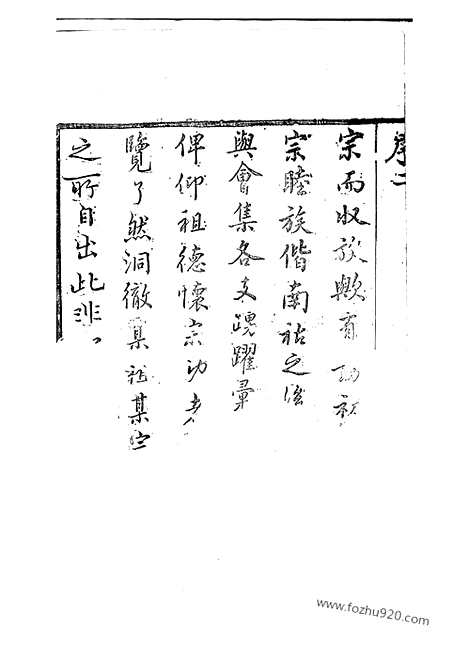 序二
宗而收族歟有功祖
宗睦族偕南祐之後
與會集各支踴躍彙
俾仰祖德懷宗功者
覽了然洞徹某祖某宗
之所自出此非
www.fozhu920.com